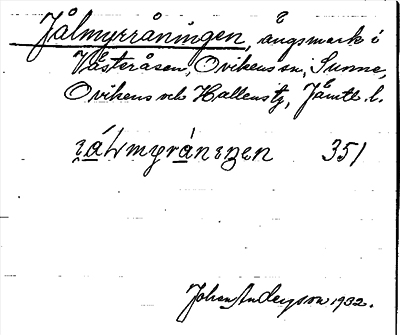 Jålmyrråningen, ängsmark i
Västeråsen, Ovikens sn, Sunne,
Ovikens och Hallens tg, Jämtl. l.
351
Johan Anderson 1932.